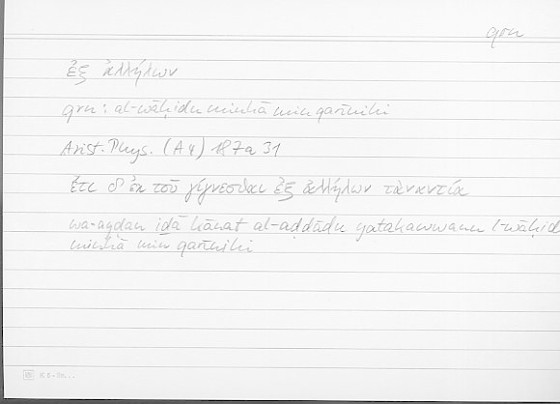 qrn
ἐξ ἀλλήλων
qrn : al-wāḥidu minhā min qarīnihi
Arist. Phys. (A 4) 187a 31
ἔτι δ' ἐκ τοῦ γίγνεσθαι ἐξ ἀλλήλων τἀναντία
wa-ayḍan iḏā kānat al-aḍdādu yatakawwanu l-wāḥid
minhā min qarīnihi